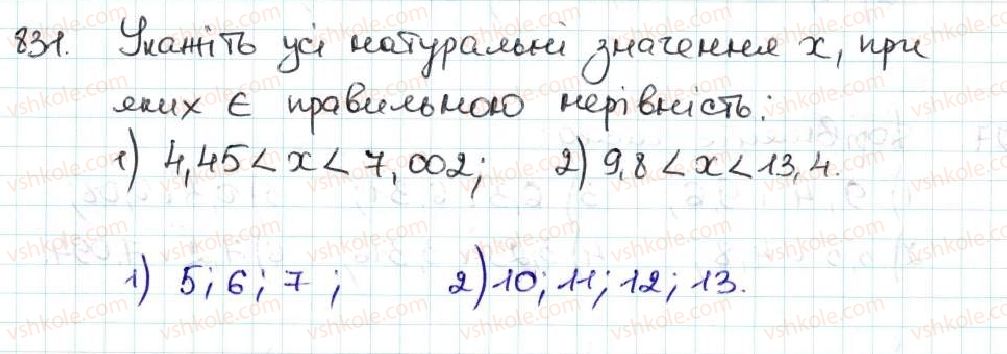 831. Укажіть усі натуральні значення x, при
яких є правильною нерівність:
1) 4,45 < x < 7,002; 2) 9,8 < x < 13,4.
1) 5; 6; 7; 2) 10; 11; 12; 13.